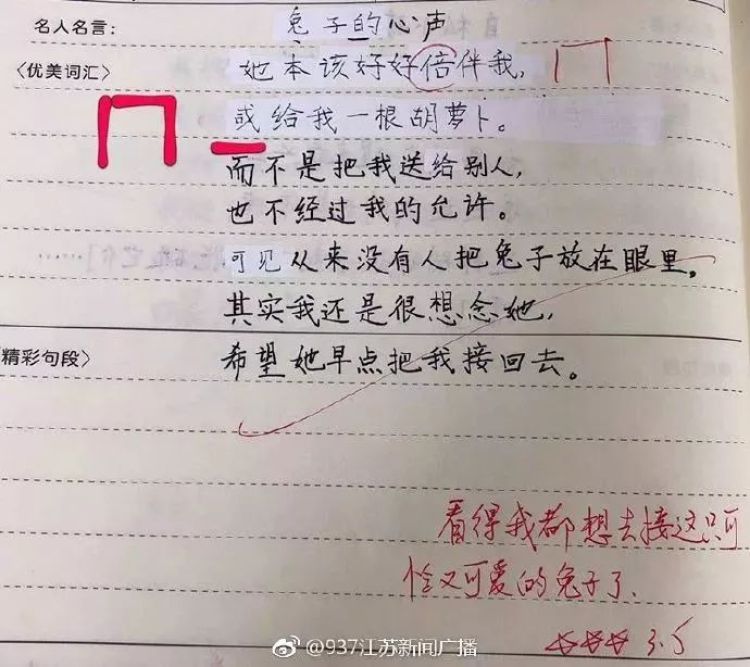 名人名言：
兔子的心声
〈优美词汇〉
她本该好好倍伴我，
或给我一根胡萝卜。
而不是把我送给别人，
也不经过我的允许。
可见从来没有人把兔子放在眼里。
其实我还是很想念她，
精彩句段〉
希望她早点把我接回去。
看得我都想去接这只可
怜又可爱的兔子了.
3.5
@937江苏新闻广播